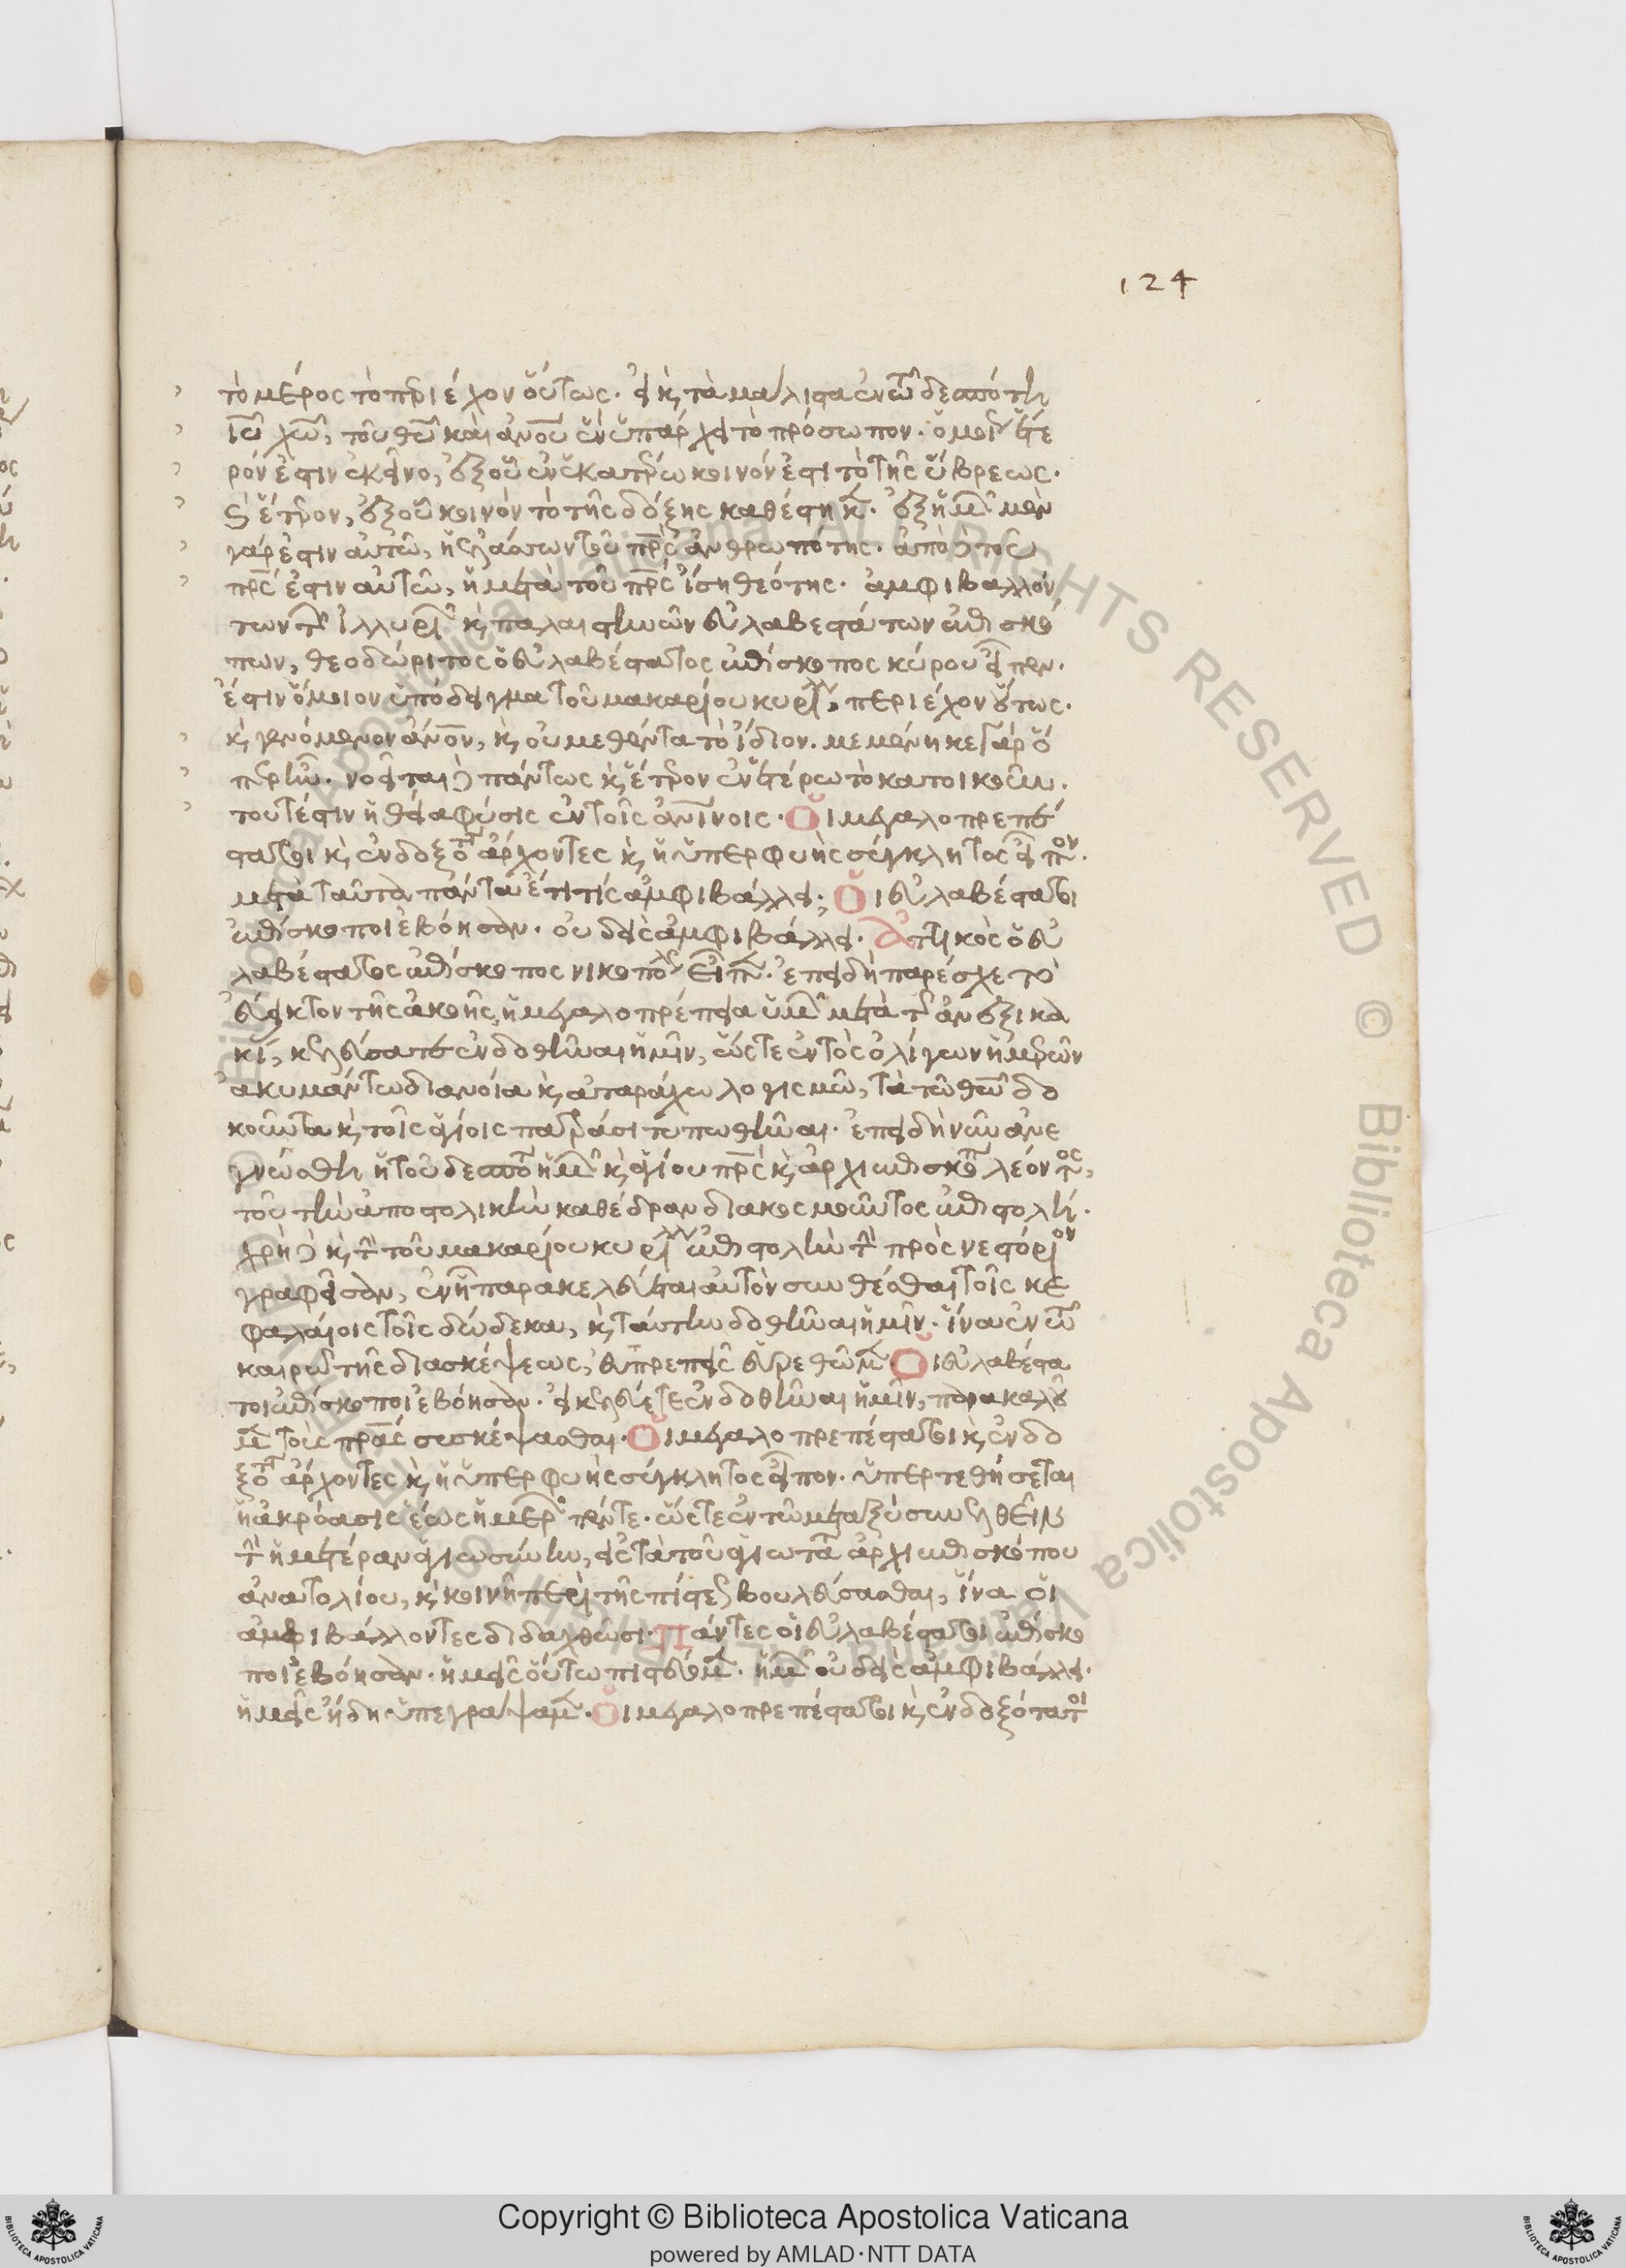 124
τὸ μέρος τὸ περιέχον οὕτως. εἰ κ(αὶ) τὰ μάλιστα ἐν τῶ δεσπότη
ιυ χω, τοῦ θυ καὶ ἀνου ἓν ὑπάρχει τὸ πρόσωπον. ὅμως ἕτε
ρόν ἐστιν ἐκεῖνο, ἐξ οὗ ἐν ἑκατέρω κοινόν ἐστι τὸ τῆς ὕβρεως.
κ(αὶ) ἕτερον, ἐξ οὗ κοινὸν τὸ τῆς δόξης καθέστηκεν. ἐξ ἡμῶν μὲν
γάρ ἐστιν αὐτῶ, ἡ ἐλάττων τοῦ πρς ἀνθρωπότης. ἀπὸ δὲ τοῦ
πρς ἐστὶν αὐτῶ, ἡ μετὰ τοῦ πρς ἴση θεότης. ἀμφιβαλλόν
των τῶν ἰλλυριῶν κ(αὶ) παλαιστινῶν εὐλαβεστάτων ἐπισκό
πων, θεοδώριτος ὁ εὐλαβέστατος ἐπίσκοπος κύρου εἶπεν.
ἔστιν ὅμοιον ὑπόδειγμα τοῦ μακαρίου κυρίλλ, περιέχον οὕτως.
κ(αὶ) γενόμενον ἄνον, κ(αὶ) οὐ μεθέντα τὸ ἴδιον. μεμένηκε γὰρ ὃ
περ ἦν. νοεῖται δὲ πάντως κ(αὶ) ἕτερον ἐν ἑτέρω τὸ κατοικοῦν.
τουτέστιν ἡ θεία φύσις ἐν τοῖς ἀνινοις. Οἱ μεγαλοπρεπέ
στατοι κ(αὶ) ἐνδοξοτ ἄρχοντες κ(αὶ) ἡ ὑπερφυὴς σύγκλητος εἶπον.
μετὰ ταῦτα πάντα ἔτι τίς ἀμφιβάλλει; Οἱ εὐλαβέστατοι
ἐπίσκοποι ἐβόησαν. οὐδεὶς ἀμφιβάλλει. Ἀττικὸς ὁ εὐ
λαβέστατος ἐπίσκοπος νικοπόλ εἶπεν. ἐπειδὴ παρέσχε τὸ
εὔεικτον τῆς ἀκοῆς ἡ μεγαλοπρέπεια ὑμῶν μετὰ τῆς ἀνεξικα
κί, κελεύσατε ἐνδοθῆναι ἡμῖν, ὥστε ἐντὸς ὀλίγων ἡμερῶν
ἀκυμάντω διανοία κ(αὶ) ἀταράχω λογισμῶ, τὰ τῶ θω δο
κοῦντα κ(αὶ) τοῖς ἁγίοις πατράσι τυπωθῆναι. ἐπειδὴ νῦν ἀνε
γνώσθη ἡ τοῦ δεσπότ ἡμῶν κ(αὶ) ἁγίου πρς κ(αὶ) ἀρχιεπισκόπ λέοντος,
τοῦ τὴν ἀποστολικὴν καθέδραν διακοσμοῦντος ἐπιστολή.
χρὴ δὲ κ(αὶ) τὴν τοῦ μακαρίου κυρίλλ ἐπιστολὴν τὴν πρὸς νεστόριον
γραφεῖσαν, ἐν ἧ παρακελεύεται αὐτὸν συνθέσθαι τοῖς κε
φαλαίοις τοῖς δώδεκα, κ(αὶ) ταύτην δοθῆναι ἡμῖν. ἵνα ἐν τῶ
καιρῶ τῆς διασκέψεως, εὐπρεπεῖς εὑρεθῶμεν. Οἱ εὐλαβέστα
τοι ἐπίσκοποι ἐβόησαν. εἰ κελεύετε ἐνδοθῆναι ἡμῖν, παρακαλοῦ
μεν τοὺς πρας συσκέψασθαι. Οἱ μεγαλοπρεπέστατοι κ(αὶ) ἐνδο
ξότ ἄρχοντες κ(αὶ) ἡ ὑπερφυὴς σύγκλητος εἶπον. ὑπερτεθήσεται
ἡ ἀκρόασις ἕως ἡμερῶν πέντε. ὥστε ἐν τῶ μεταξὺ συνελθεῖν
τὴν ἡμετέραν ἁγιωσύνην, εἰς τὰ τοῦ ἁγιωτά ἀρχιεπισκόπου
ἀνατολίου, κ(αὶ) κοινῆ περὶ τῆς πίστεως βουλεύσασθαι, ἵνα οἱ
ἀμφιβάλλοντες διδαχθῶσι. Πάντες οἱ εὐλαβέστατοι ἐπίσκο
ποι ἐβόησαν. ἡμεῖς οὕτω πιστεύομεν. ἡμῶν οὐδεὶς ἀμφιβάλλει.
ἡμεῖς ἤδη ὑπεγράψαμεν. Οἱ μεγαλοπρεπέστατοι κ(αὶ) ἐνδοξότατοι
ALL RIGHTS RESERVED © Biblioteca Apostolica Vaticana
Copyright © Biblioteca Apostolica Vaticana
powered by AMLAD·NTT DATA